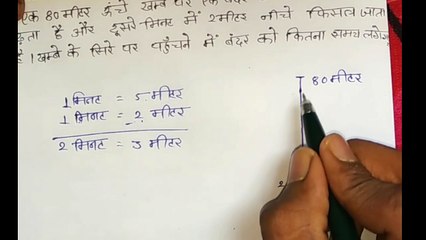 एक 80 मीटर ऊंचे खम्बे पर एक
है और दूसरे मिनट में 2 मीटर नीचे फिसल जाता
है । खम्बे के सिरे पर पहुँचने में बंदर को कितना समय
80 मीटर
1 मिनट = 5 मीटर
1 मिनट = -2 मीटर
2 मिनट = 3 मीटर